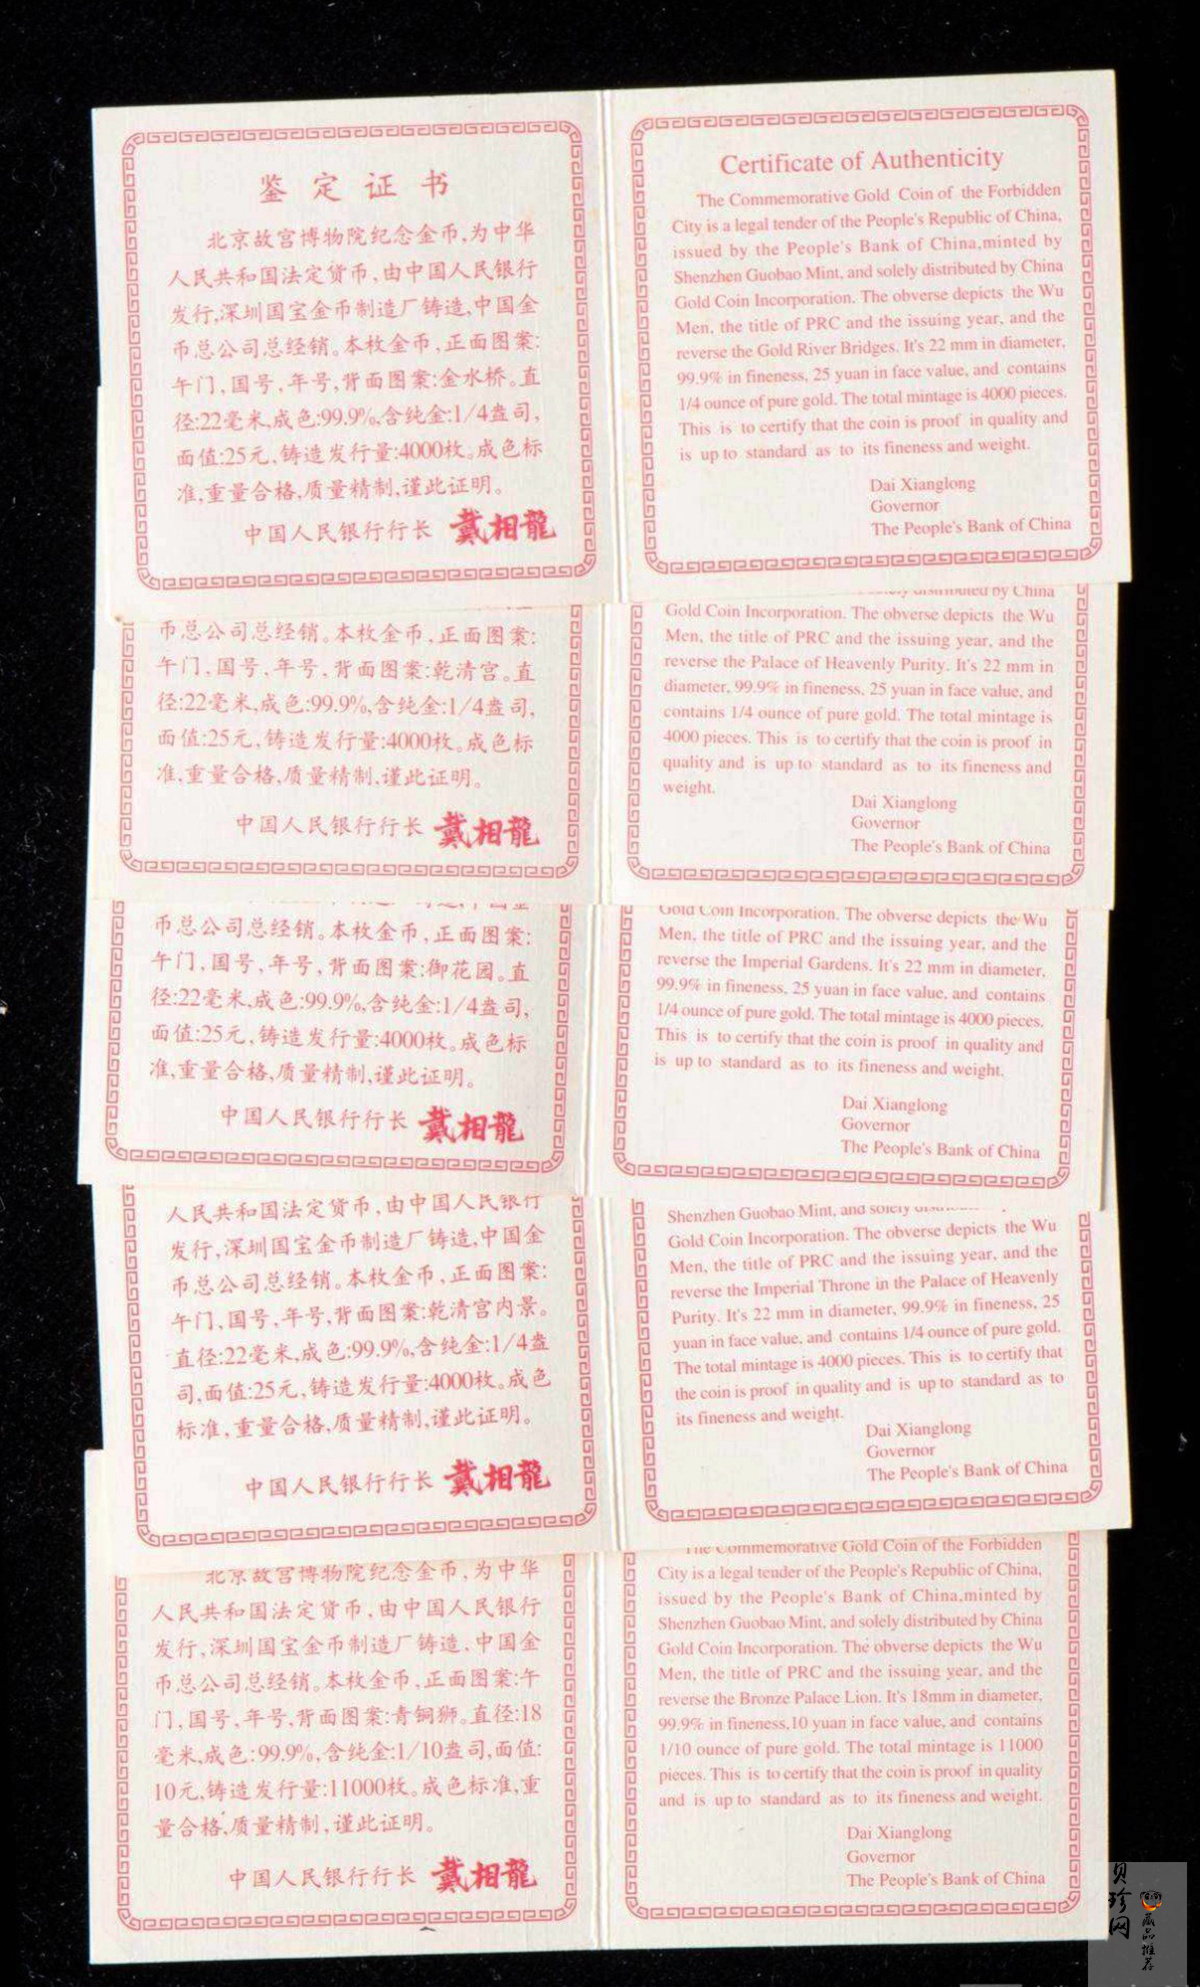 鉴定证书
北京故宫博物院纪念金币,为中华
人民共和国法定货币,由中国人民银行
发行,深圳国宝金币制造厂铸造,中国金
币总公司总经销。本枚金币,正面图案:
午门,国号,年号,背面图案:金水桥。直
径:22毫米,成色:99.9%,含纯金:1/4盎司,
面值:25元,铸造发行量:4000枚。成色标
准,重量合格,质量精制,谨此证明。
中国人民银行行长 戴相龍
Certificate of Authenticity
The Commemorative Gold Coin of the Forbidden
City is a legal tender of the People's Republic of China,
issued by the People's Bank of China,minted by
Shenzhen Guobao Mint, and solely distributed by China
Gold Coin Incorporation. The obverse depicts the Wu
Men, the title of PRC and the issuing year, and the
reverse the Gold River Bridges. It's 22 mm in diameter,
99.9% in fineness, 25 yuan in face value, and contains
1/4 ounce of pure gold. The total mintage is 4000 pieces.
This is to certify that the coin is proof in quality and
is up to standard as to its fineness and weight.
Dai Xianglong
Governor
The People's Bank of China
币总公司总经销。本枚金币,正面图案:
午门,国号,年号,背面图案:乾清宫。直
径:22毫米,成色:99.9%,含纯金:1/4盎司,
面值:25元,铸造发行量:4000枚。成色标
准,重量合格,质量精制,谨此证明。
中国人民银行行长 戴相龍
distributed by China
Gold Coin Incorporation. The obverse depicts the Wu
Men, the title of PRC and the issuing year, and the
reverse the Palace of Heavenly Purity. It's 22 mm in
diameter, 99.9% in fineness, 25 yuan in face value, and
contains 1/4 ounce of pure gold. The total mintage is
4000 pieces. This is to certify that the coin is proof in
quality and is up to standard as to its fineness and
weight.
Dai Xianglong
Governor
The People's Bank of China
币总公司总经销。本枚金币,正面图案:
午门,国号,年号,背面图案:御花园。直
径:22毫米,成色:99.9%,含纯金:1/4盎司,
面值:25元,铸造发行量:4000枚。成色标
准,重量合格,质量精制,谨此证明。
中国人民银行行长 戴相龍
Gold Coin Incorporation. The obverse depicts the Wu
Men, the title of PRC and the issuing year, and the
reverse the Imperial Gardens. It's 22 mm in diameter,
99.9% in fineness, 25 yuan in face value, and contains
1/4 ounce of pure gold. The total mintage is 4000 pieces.
This is to certify that the coin is proof in quality and
is up to standard as to its fineness and weight.
Dai Xianglong
Governor
The People's Bank of China
人民共和国法定货币,由中国人民银行
发行,深圳国宝金币制造厂铸造,中国金
币总公司总经销。本枚金币,正面图案:
午门,国号,年号,背面图案:乾清宫内景。
直径:22毫米,成色:99.9%,含纯金:1/4盎
司,面值:25元,铸造发行量:4000枚。成色
标准,重量合格,质量精制,谨此证明。
中国人民银行行长 戴相龍
Shenzhen Guobao Mint, and solely
Gold Coin Incorporation. The obverse depicts the Wu
Men, the title of PRC and the issuing year, and the
reverse the Imperial Throne in the Palace of Heavenly
Purity. It's 22 mm in diameter, 99.9% in fineness, 25
yuan in face value, and contains 1/4 ounce of pure gold.
The total mintage is 4000 pieces. This is to certify that
the coin is proof in quality and is up to standard as to
its fineness and weight.
Dai Xianglong
Governor
The People's Bank of China
北京故宫博物院纪念金币,为中华
人民共和国法定货币,由中国人民银行
发行,深圳国宝金币制造厂铸造,中国金
币总公司总经销。本枚金币,正面图案:午
门,国号,年号,背面图案:青铜狮。直径:18
毫米,成色:99.9%,含纯金:1/10盎司,面值:
10元,铸造发行量:11000枚。成色标准,重
量合格,质量精制,谨此证明。
中国人民银行行长 戴相龍
The Commemorative Gold Coin of the Forbidden
City is a legal tender of the People's Republic of China,
issued by the People's Bank of China,minted by
Shenzhen Guobao Mint, and solely distributed by China
Gold Coin Incorporation. The obverse depicts the Wu
Men, the title of PRC and the issuing year, and the
reverse the Bronze Palace Lion. It's 18mm in diameter,
99.9% in fineness,10 yuan in face value, and contains
1/10 ounce of pure gold. The total mintage is 11000
pieces. This is to certify that the coin is proof in quality
and is up to standard as to its fineness and weight.
Dai Xianglong
Governor
The People's Bank of China
贝珍网
藏品推荐